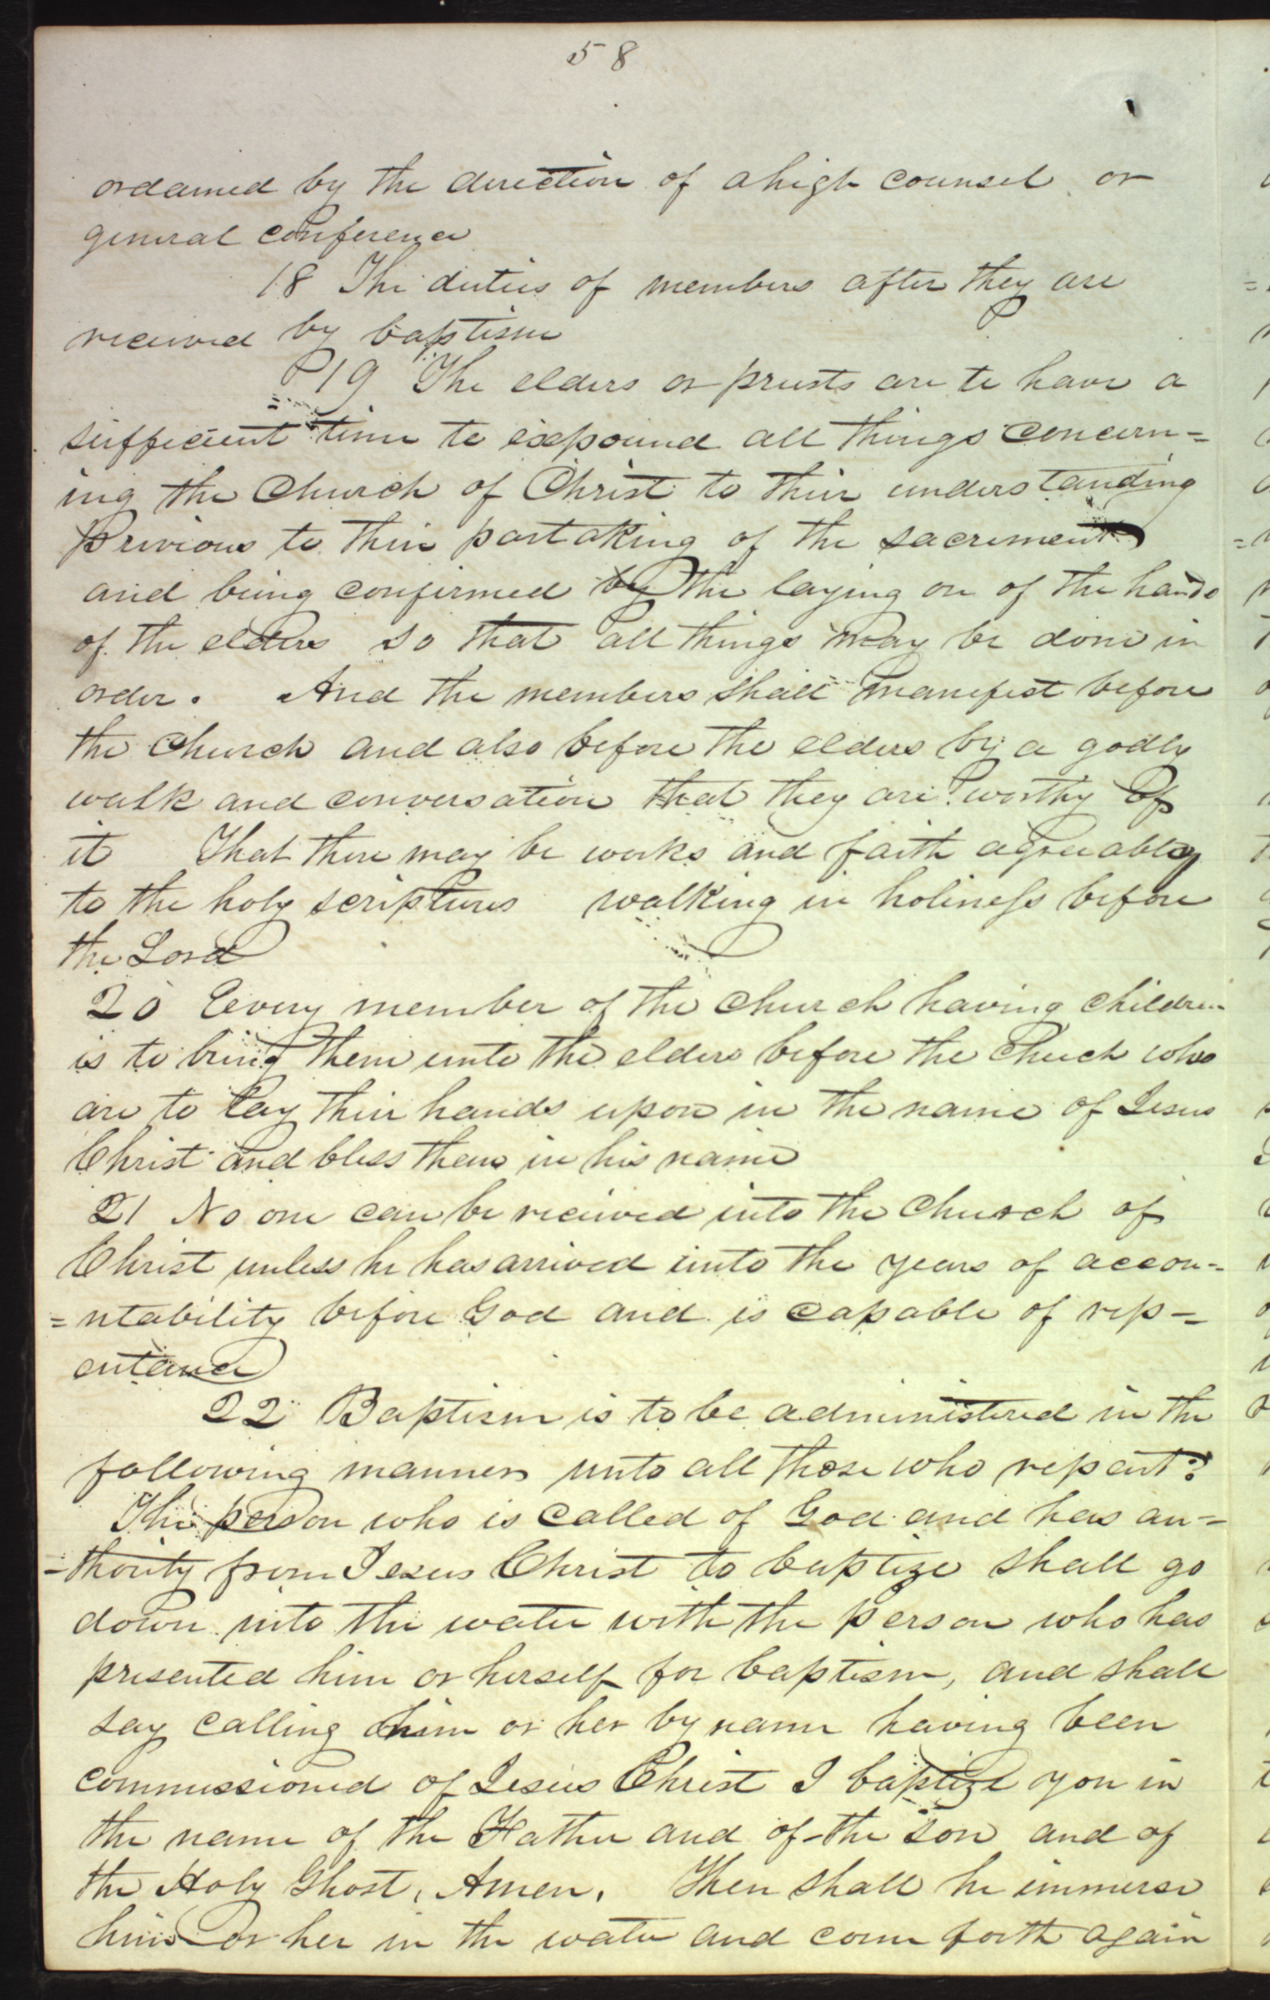 58
ordained by the direction of a high counsel or
general conference
18 The duties of members after they are
received by baptism
19 The elders or priests are to have a
sufficient time to expound all things concern=
ing the Church of Christ to their understanding
previous to their partaking of the sacrement
and being confirmed by the laying on of the hands
of the elders so that all things may be done in
order. And the members shall manifest before
the church and also before the elders by a godly
walk and conversation that they are worthy of
it That there may be works and faith agreeably
to the holy scriptures walking in holiness before
the Lord
20 Every member of the church having children
is to bring them unto the elders before the Chuch who
are to lay their hands upon in the name of Jesus
Christ and bless them in his name
21 No one can be received into the church of
Christ unless he has arrived unto the years of accou=
=ntability before God and is capable of rep=
entance
22 Baptism is to be administered in the
following manner unto all those who repent:
The person who is called of God and has au=
=thority from Jesus Christ to baptize shall go
down into the water with the person who has
presented him or herself for baptism, and shall
say calling him or her by name having been
commissioned of Jesus Christ I baptize you in
the name of the Father and of the son and of
the Holy Ghost, Amen. Then shall he immerse
him or her in the water and come forth again